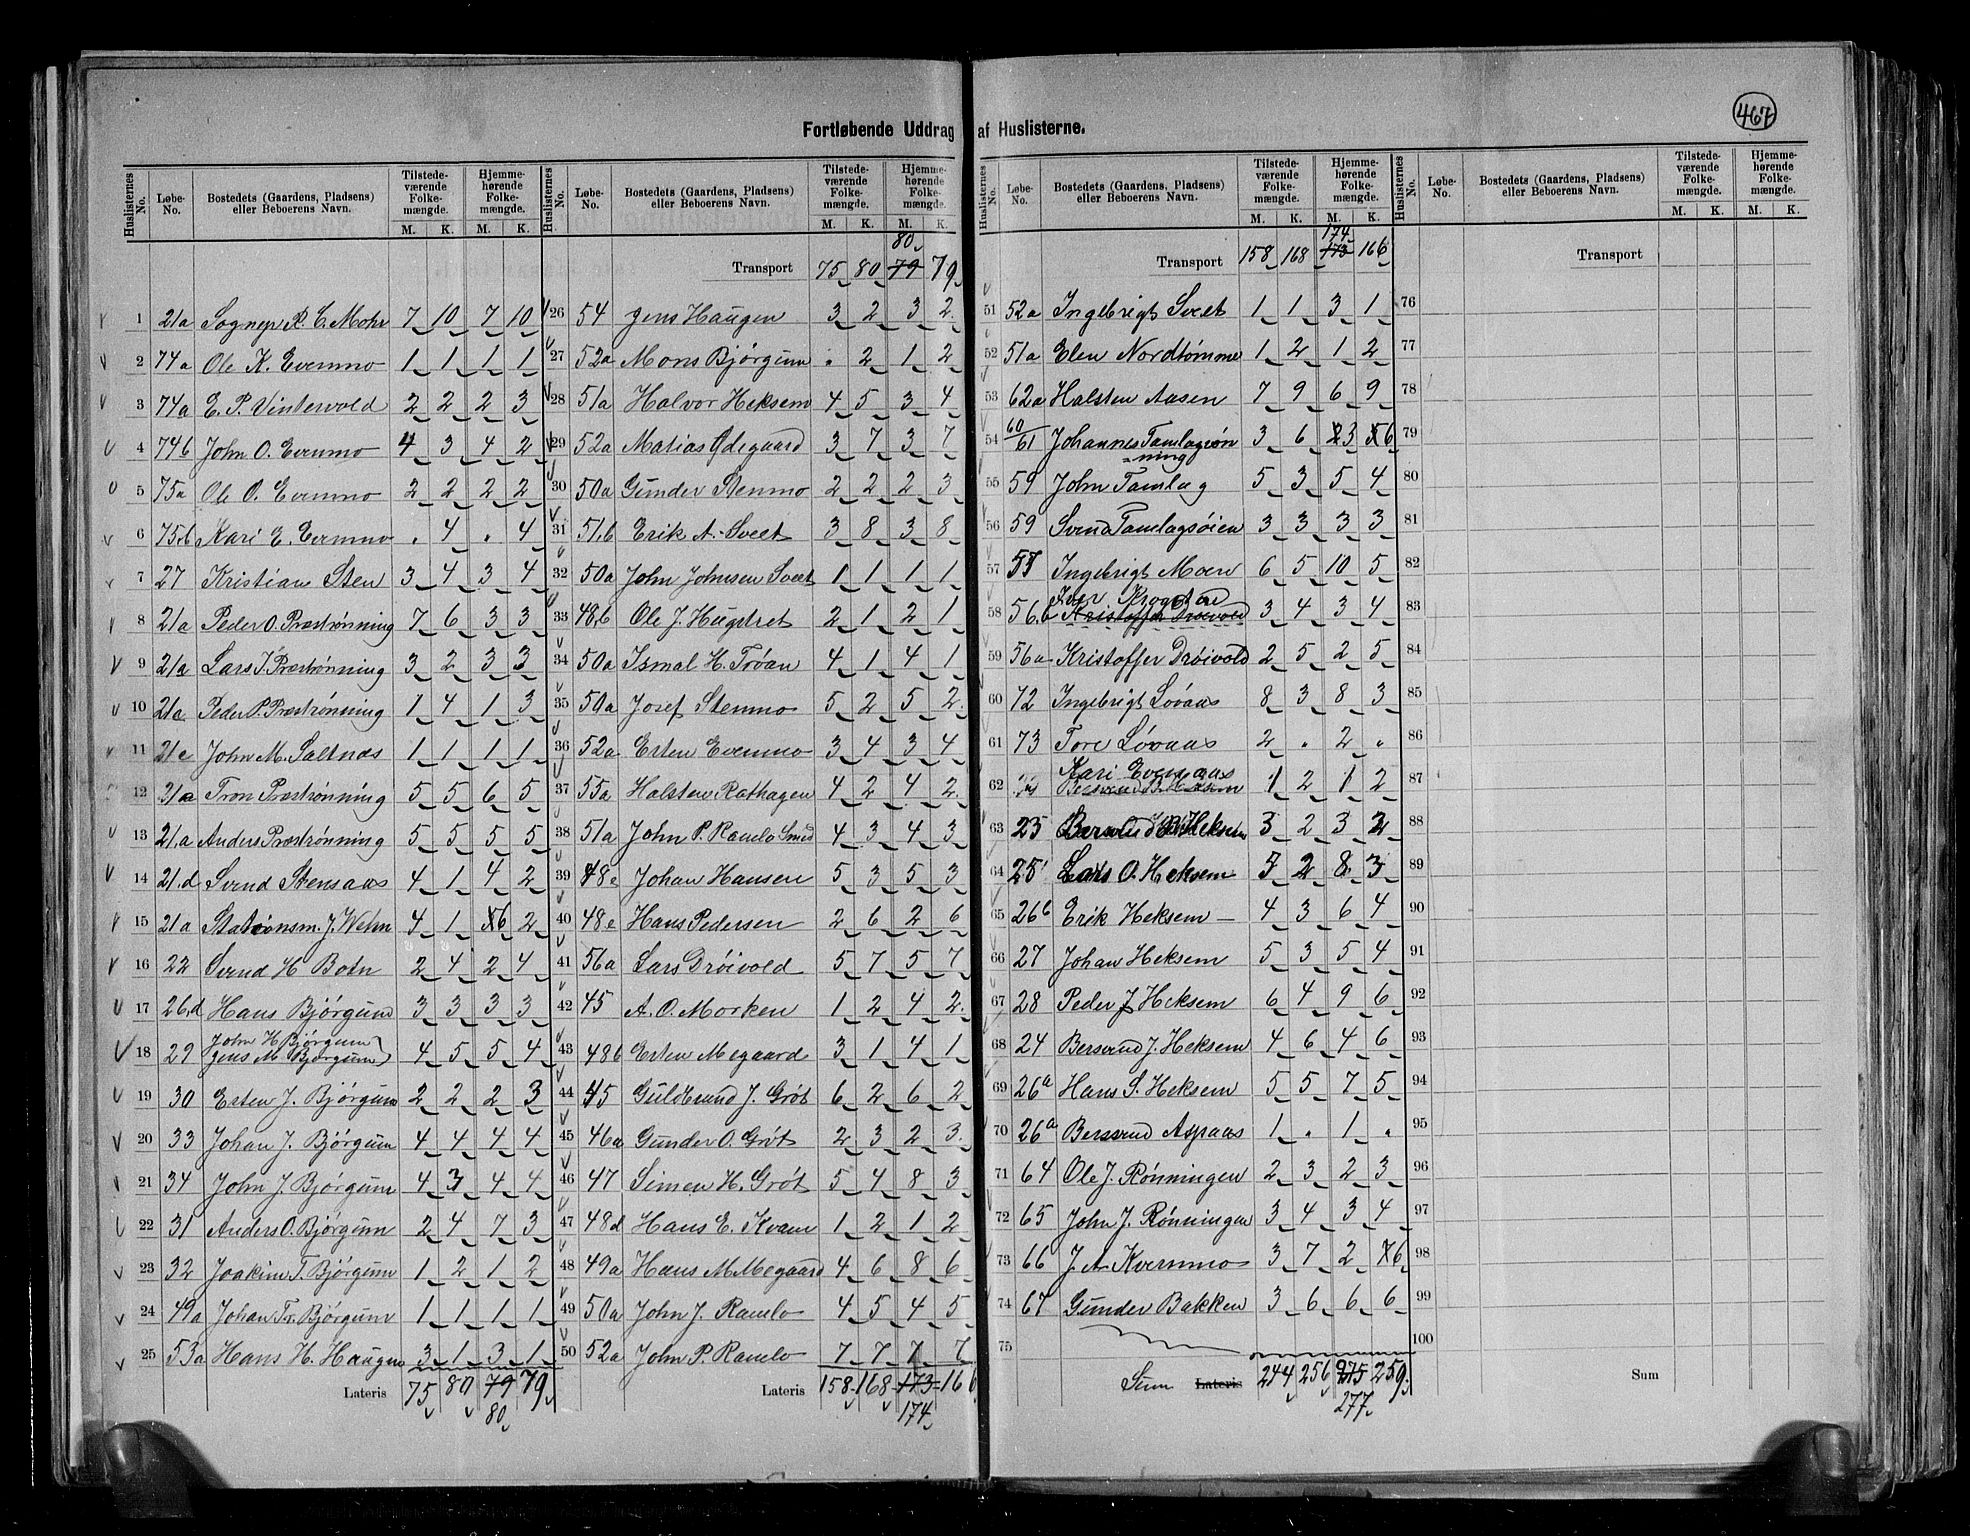 467
Fortløbende Uddrag af Huslisterne.
Huslisternes No. Løbe-No. Bostedets (Gaardens, Pladsens) eller Beboerens Navn. Tilstedeværende Folkemængde. M. K. Hjemmehørende Folkemængde. M. K.
1 21a Sognepr R. C. Mohr 7 10 7 10
2 74a Ole K. Evenmo 1 1 1 1
3 74a E. P. Vintervold 2 2 2 3
4 74b John O. Evenmo 4 3 4 2
5 75a Ole O. Evenmo 2 2 2 2
6 75.b Kari E. Evenmo . 4 . 4
7 27 Kristian Sten 3 4 3 4
8 21a Peder O. Præstrønning 7 6 3 3
9 21a Lars J. Præstrønning 3 2 3 3
10 21c Peder P. Præstrønning 1 4 1 3
11 21c John M. Saltnæs 1 1 1 1
12 21a Tron Præstrønning 5 5 6 5
13 21.a Anders Præstrønning 5 5 5 5
14 21.d Svend Stensaas 4 1 4 2
15 21a Stationsm. J. Wehn 4 1 6 2
16 22 Svend H Botn 2 4 2 4
17 26.d Hans Bjørgum 3 3 3 3
18 29 John H Bjørgum
Jens M Bjørgum 4 5 5 4
19 30 Esten J. Bjørgum 2 2 2 3
20 33 Johan J. Bjørgum 4 4 4 4
21 34 John J. Bjørgum 4 3 4 4
22 31 Anders O. Bjørgum 2 4 7 3
23 32 Joakim T. Bjørgum 1 2 1 2
24 49a Johan Tr. Bjørgum 1 1 1 1
25 53a Hans H. Haugen 3 1 3 1
Lateris 75 80 79 79
80
Huslisternes No. Løbe-No. Bostedets (Gaardens, Pladsens) eller Beboerens Navn. Tilstedeværende Folkemængde. M. K. Hjemmehørende Folkemængde. M. K.
80
Transport 75 80 79 79
26 54 Jens Haugen 3 2 3 2
27 52a Mons Bjørgum . 2 1 2
28 51a Halvor Heksem 4 5 3 4
29 52a Matias Ødegaard 3 7 3 7
30 50a Gunder Stenmo 2 2 2 3
31 51.b Erik A. Sveet 3 8 3 8
32 50a John Johnsen Sveet 1 1 1 1
33 48.b Ole J. Hugstret 2 1 2 1
34 50a Ismal H. Trøan 4 1 4 1
35 50a Josef Stenmo 5 2 5 2
36 52a Esten Evenmo 3 4 3 4
37 55a Halsten Rathagen 4 2 4 2
38 51a John P. Ramlo Smed 4 3 4 3
39 48e Johan Hansen 5 3 5 3
40 48e Hans Pedersen 2 6 2 6
41 56a Lars Drøivold 5 7 5 7
42 45 A. O. Morken 1 2 4 2
43 48b Esten Megaard 3 1 4 1
44 45 Guldbrand J. Grøt 6 2 6 2
45 46a Gunder O. Grøt 2 3 2 3
46 47 Simen H. Grøt 5 4 8 3
47 48d Hans E. Kvam 1 2 1 2
48 49a Hans M. Megaard 4 6 8 6
49 50a John J. Ramlo 4 5 4 5
50 52a John P. Ramlo 7 7 7 7
Lateris 158 168 173 166
174
Huslisternes No. Løbe-No. Bostedets (Gaardens, Pladsens) eller Beboerens Navn. Tilstedeværende Folkemængde. M. K. Hjemmehørende Folkemængde. M. K.
174
Transport 158 168 173 166
51 52a Ingebrigt Sveet 1 1 3 1
52 51a Elen Nordtømme 1 2 1 2
53 62a Halsten Aasen 7 9 6 9
54 60/61 Johannes Tamlagrøn
=ning 3 6 3 6
55 59 John Tamlag 5 3 5 4
56 59 Svend Tamlagsøien 3 3 3 3
57 57 Ingebrigt Moen 6 5 10 5
Iver Krogstad
58 56.b Kristoffer Drøivold 3 4 3 4
59 56a Kristoffer Drøivold 2 5 2 5
60 72 Ingebrigt Løvaas 8 3 8 3
61 73 Tore Løvaas 2 . 2 .
Kari Evensaas
62 Bersvend B. Heksem 1 2 1 2
63 25 Bersvend Heksem 3 2 3 2
64 25 Lars O. Heksem 7 2 8 3
65 26b Erik Heksem 4 3 6 4
66 27 Johan Heksem 5 3 5 4
67 28 Peder J Heksem 6 4 9 6
68 24 Bersvend J. Heksem 4 6 4 6
69 26a Hans S. Heksem 5 5 7 5
70 26a Bersvend Aspaas 1 . 1 .
71 64 Ole J. Rønningen 2 3 2 3
72 65 John J. Rønningen 3 4 3 4
73 66 J. A. Kvernmo 3 7 2 6
74 67 Gunder Bakken 3 6 6 6
75
Sum Lateris 244 256 275 259
277
Huslisternes No. Løbe-No. Bostedets (Gaardens, Pladsens) eller Beboerens Navn. Tilstedeværende Folkemængde. M. K. Hjemmehørende Folkemængde. M. K.
Transport
76
77
78
79
80
81
82
83
84
85
86
87
88
89
90
91
92
93
94
95
96
97
98
99
100
Sum